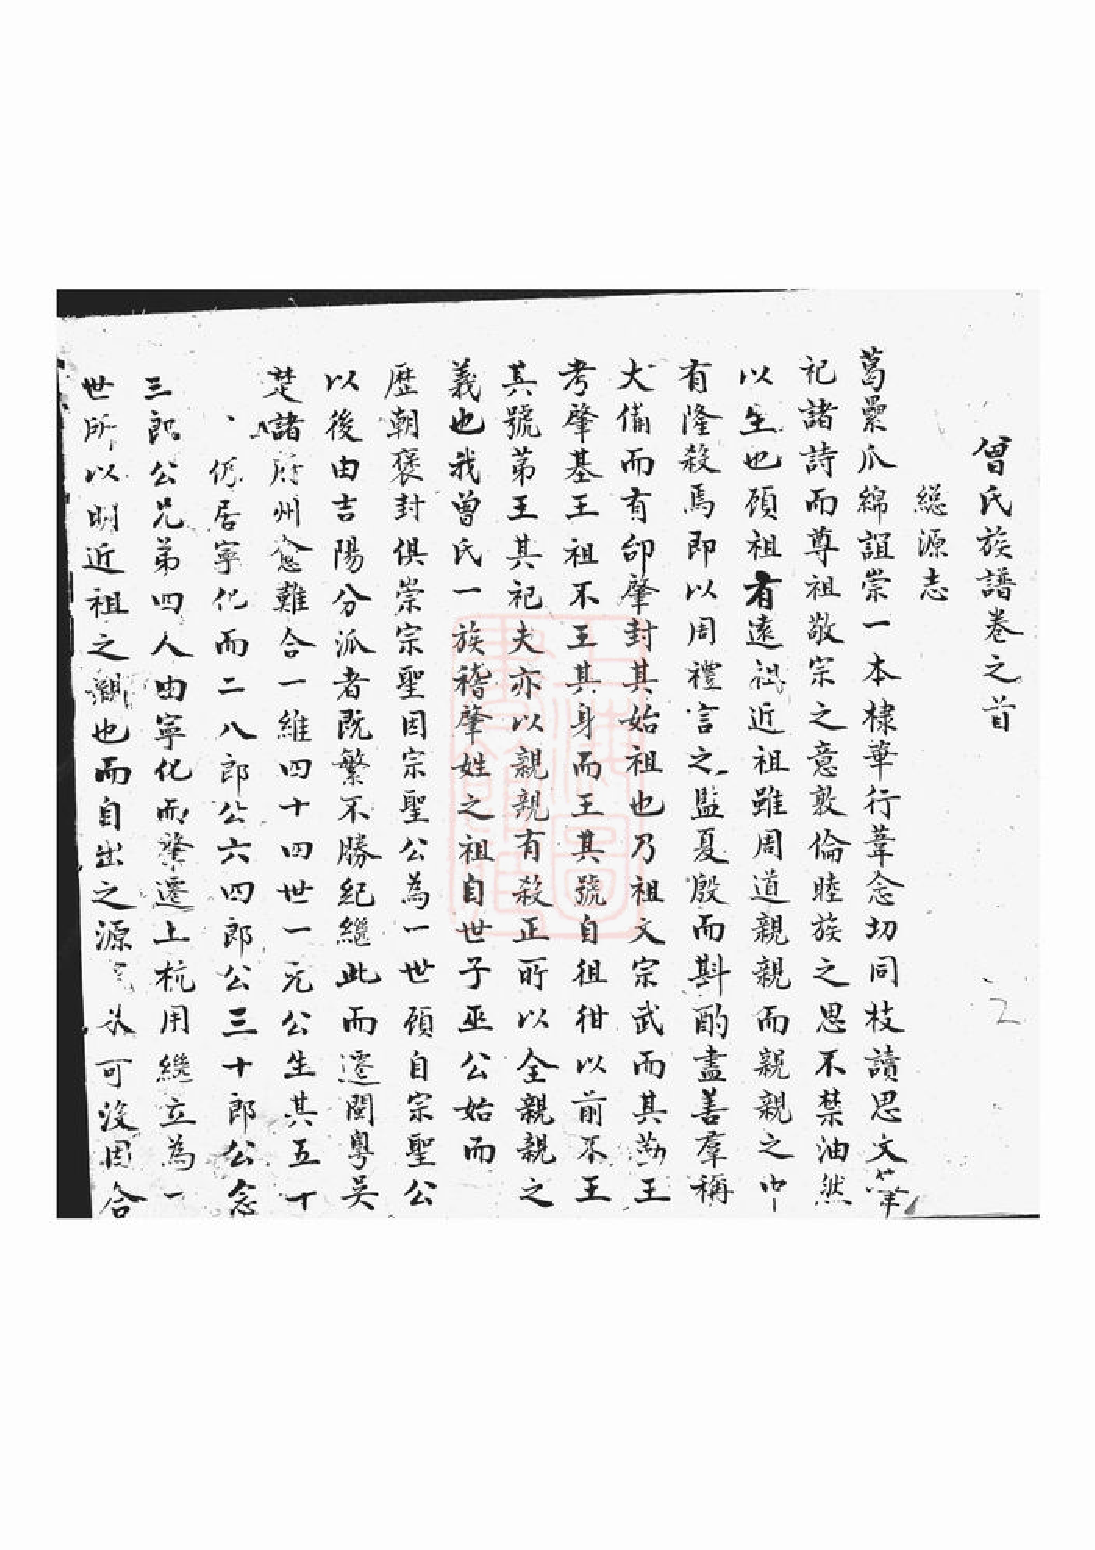 曾氏族譜卷之首
總源志
葛藟爪綿誼崇一本棣華行葦念切同枝讀思文
祀諸詩而尊祖敬宗之意敦倫睦族之思不禁油然
以生也顧祖有遠祖近祖雖周道親親而親親之中
有隆殺焉即以周禮言之監夏殷而斟酌盡善羣稱
大備而有邰肇封其始祖也乃祖文宗武而其王
考肇基王祖不王其身而王其號自徂紺以前不王
其號第王其祀夫亦以親親有殺正所以全親親之
義也我曾氏一族稽肇姓之祖自世子巫公始而
歷朝褒封俱崇宗聖因宗聖公為一世顧自宗聖公
以後由吉陽分派者既繁不勝紀繼此而遷閩粵吴
楚諸府州愈難合一維四十四世一元公生其五十
居寧化而二八郎公六四郎公三十郎公念
三郎公兄弟四人由寧化而肇遷上杭用繼立為一
世所以明近祖之也而自出之源可没因合
上海圖書館藏
2